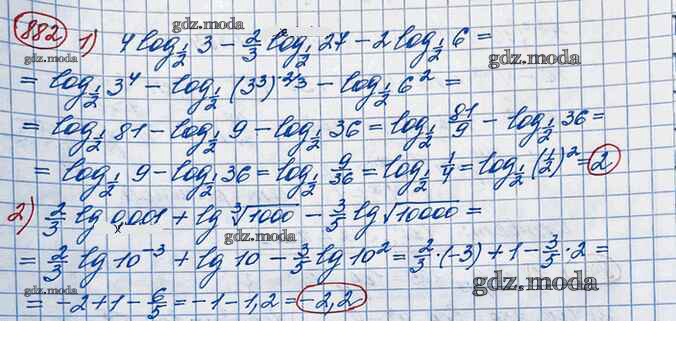 gdz.moda
882 1) 4 log_{1/2} 3 − 2/3 log_{1/2} 27 − 2 log_{1/2} 6 =
gdz.moda gdz.moda
= log_{1/2} 3^4 − log_{1/2} (3^3)^{2/3} − log_{1/2} 6^2 =
gdz.moda
= log_{1/2} 81 − log_{1/2} 9 − log_{1/2} 36 = log_{1/2} 81/9 − log_{1/2} 36 =
= log_{1/2} 9 − log_{1/2} 36 = log_{1/2} 9/36 = log_{1/2} 1/4 = log_{1/2} (1/2)^2 = 2
gdz.moda gdz.moda
2) 2/3 lg 0,001 + lg ∛1000 − 3/5 lg √10000 =
= 2/3 lg 10^{−3} + lg 10 − 3/5 lg 10^2 = 2/3 · (−3) + 1 − 3/5 · 2 =
gdz.moda gdz.moda
= −2 + 1 − 6/5 = −1 − 1,2 = −2,2